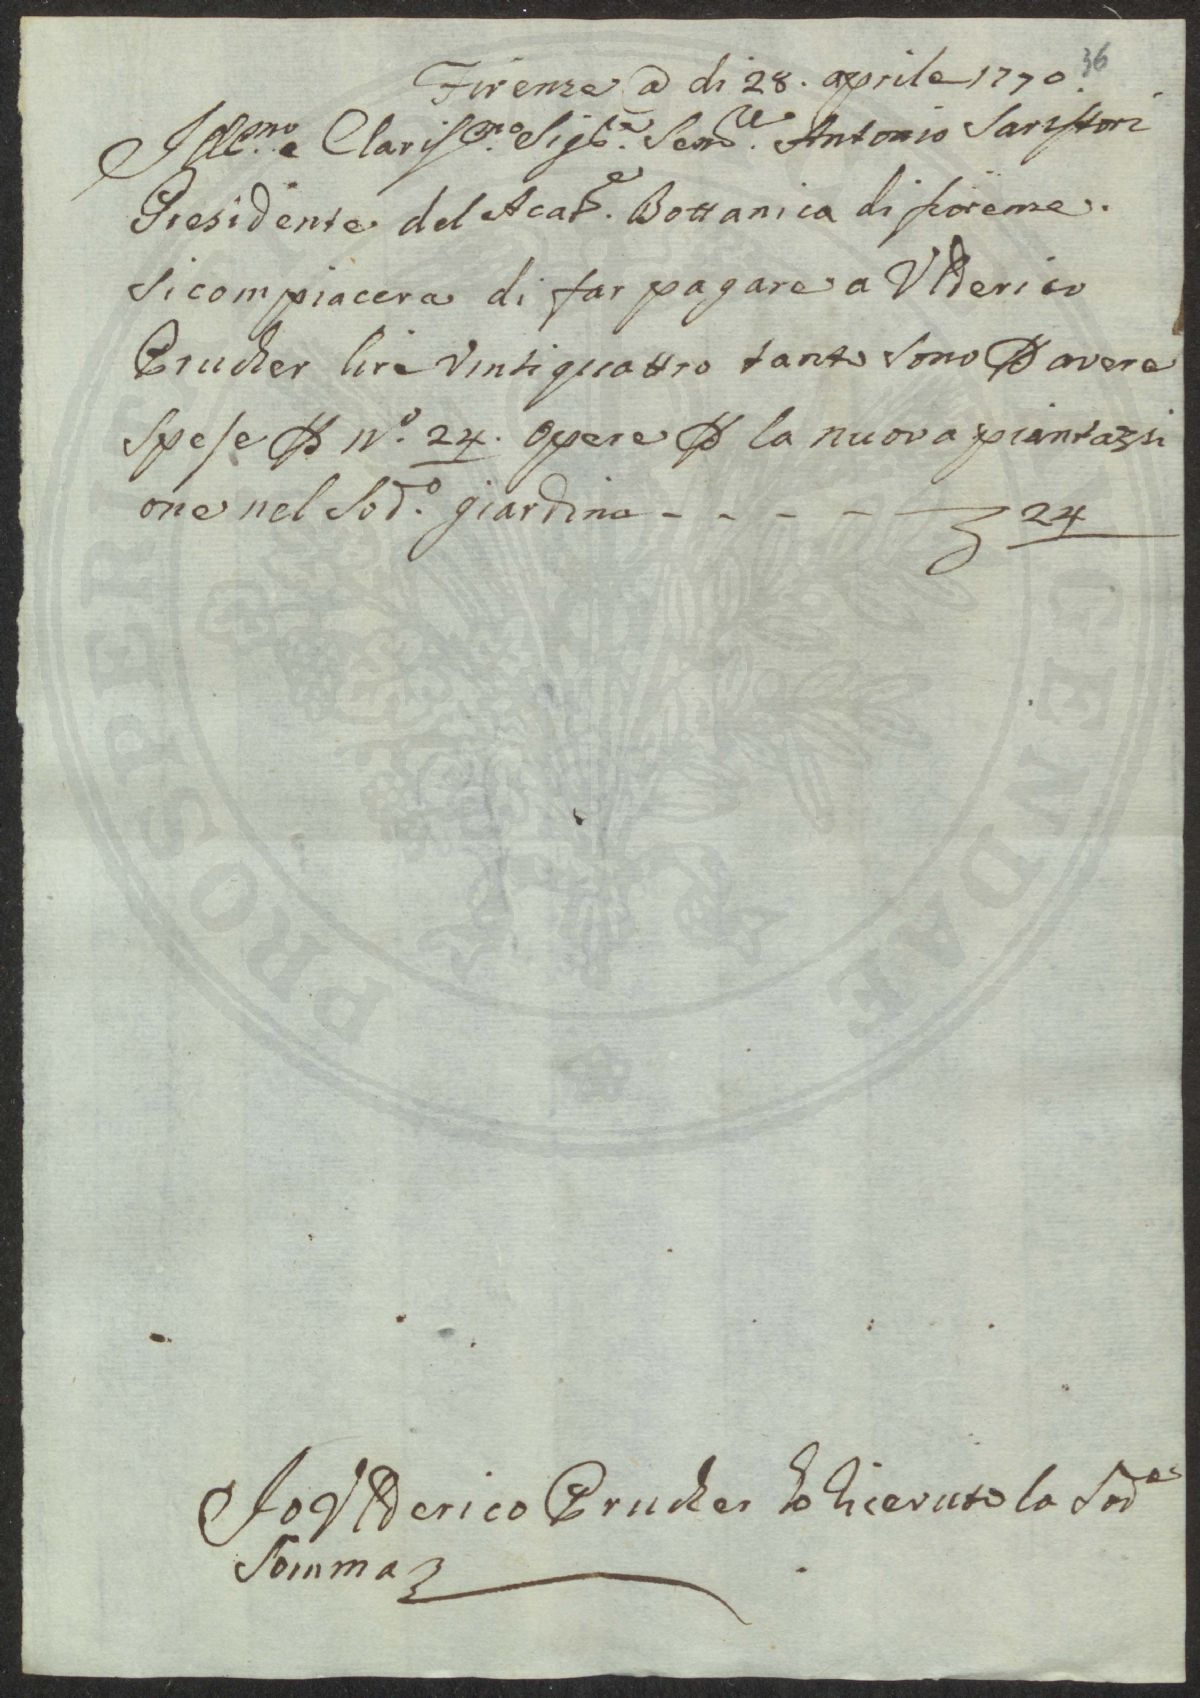 36
Firenze a di 28. aprile 1770.
Ill.mo e Clariss.mo Sig.re Sen.re Antonio Saristori
Presidente del Acad.e Bottanica di fiorenze.
Si compiacera di far pagare a Ulderico
Prucher lire vintiquattro tante sono p avere
spese p N.o 24. opere p la nuova piantazsi
one nel Sod.o giardino - - - - 24
Jo Ulderico Prucher ho ricevuto la Sod.a
Somma
PROSPERITATI AUGENDAE